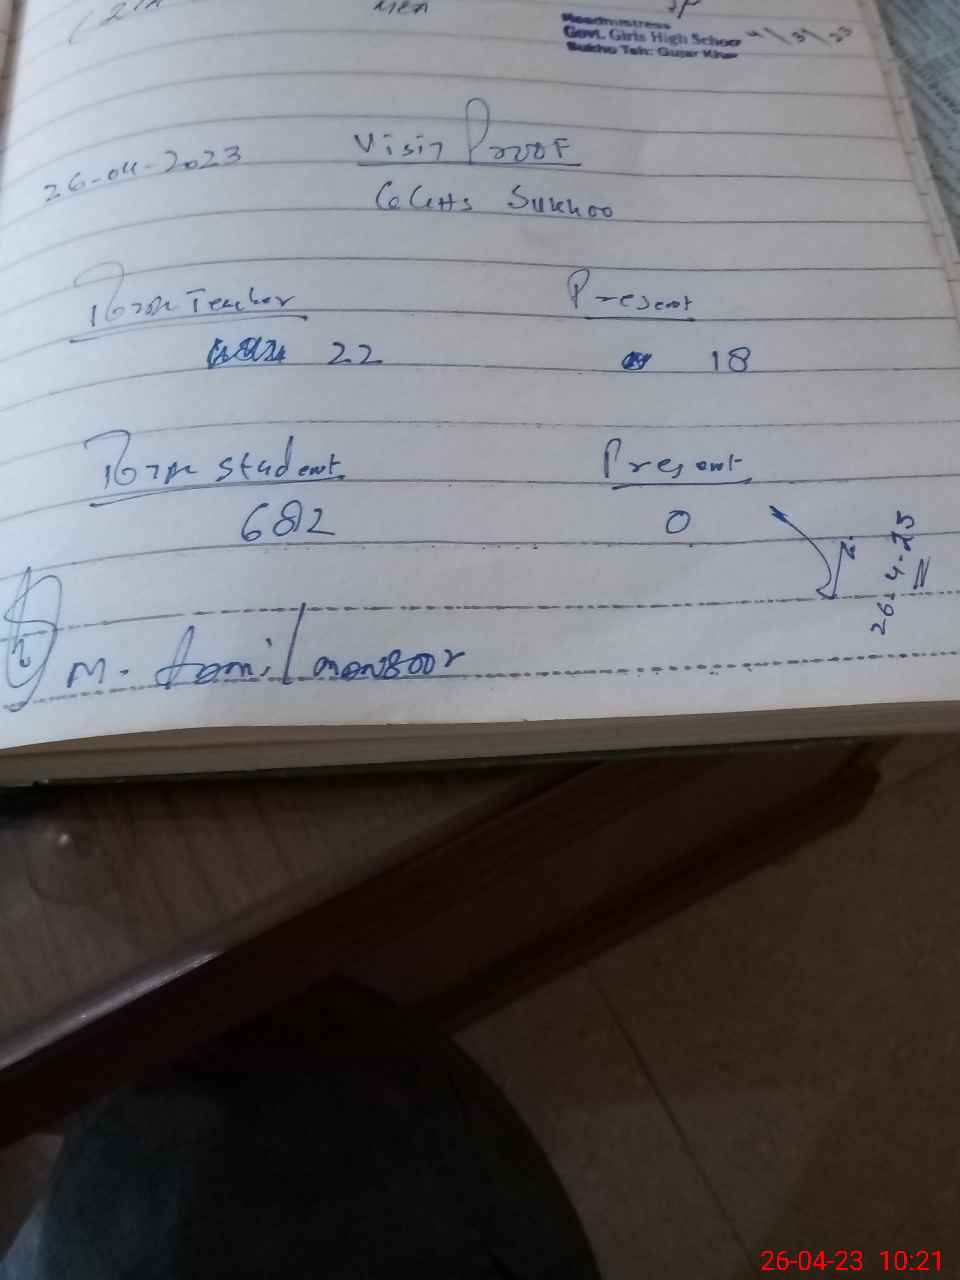 Headmistress
Govt. Girls High School
Sukho Teh: Gujar Khan
26-04-2023 Visit Proof
GGHS Sukhoo
Teacher Present
22 18
student Present
682 0
26-4-23
M. Jamil mansoor
26-04-23 10:21